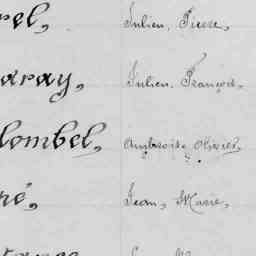 rel, Julien, Pierre,
aray, Julien, François,
lombel, Ambroise Olivier,
né, Jean, Marie,